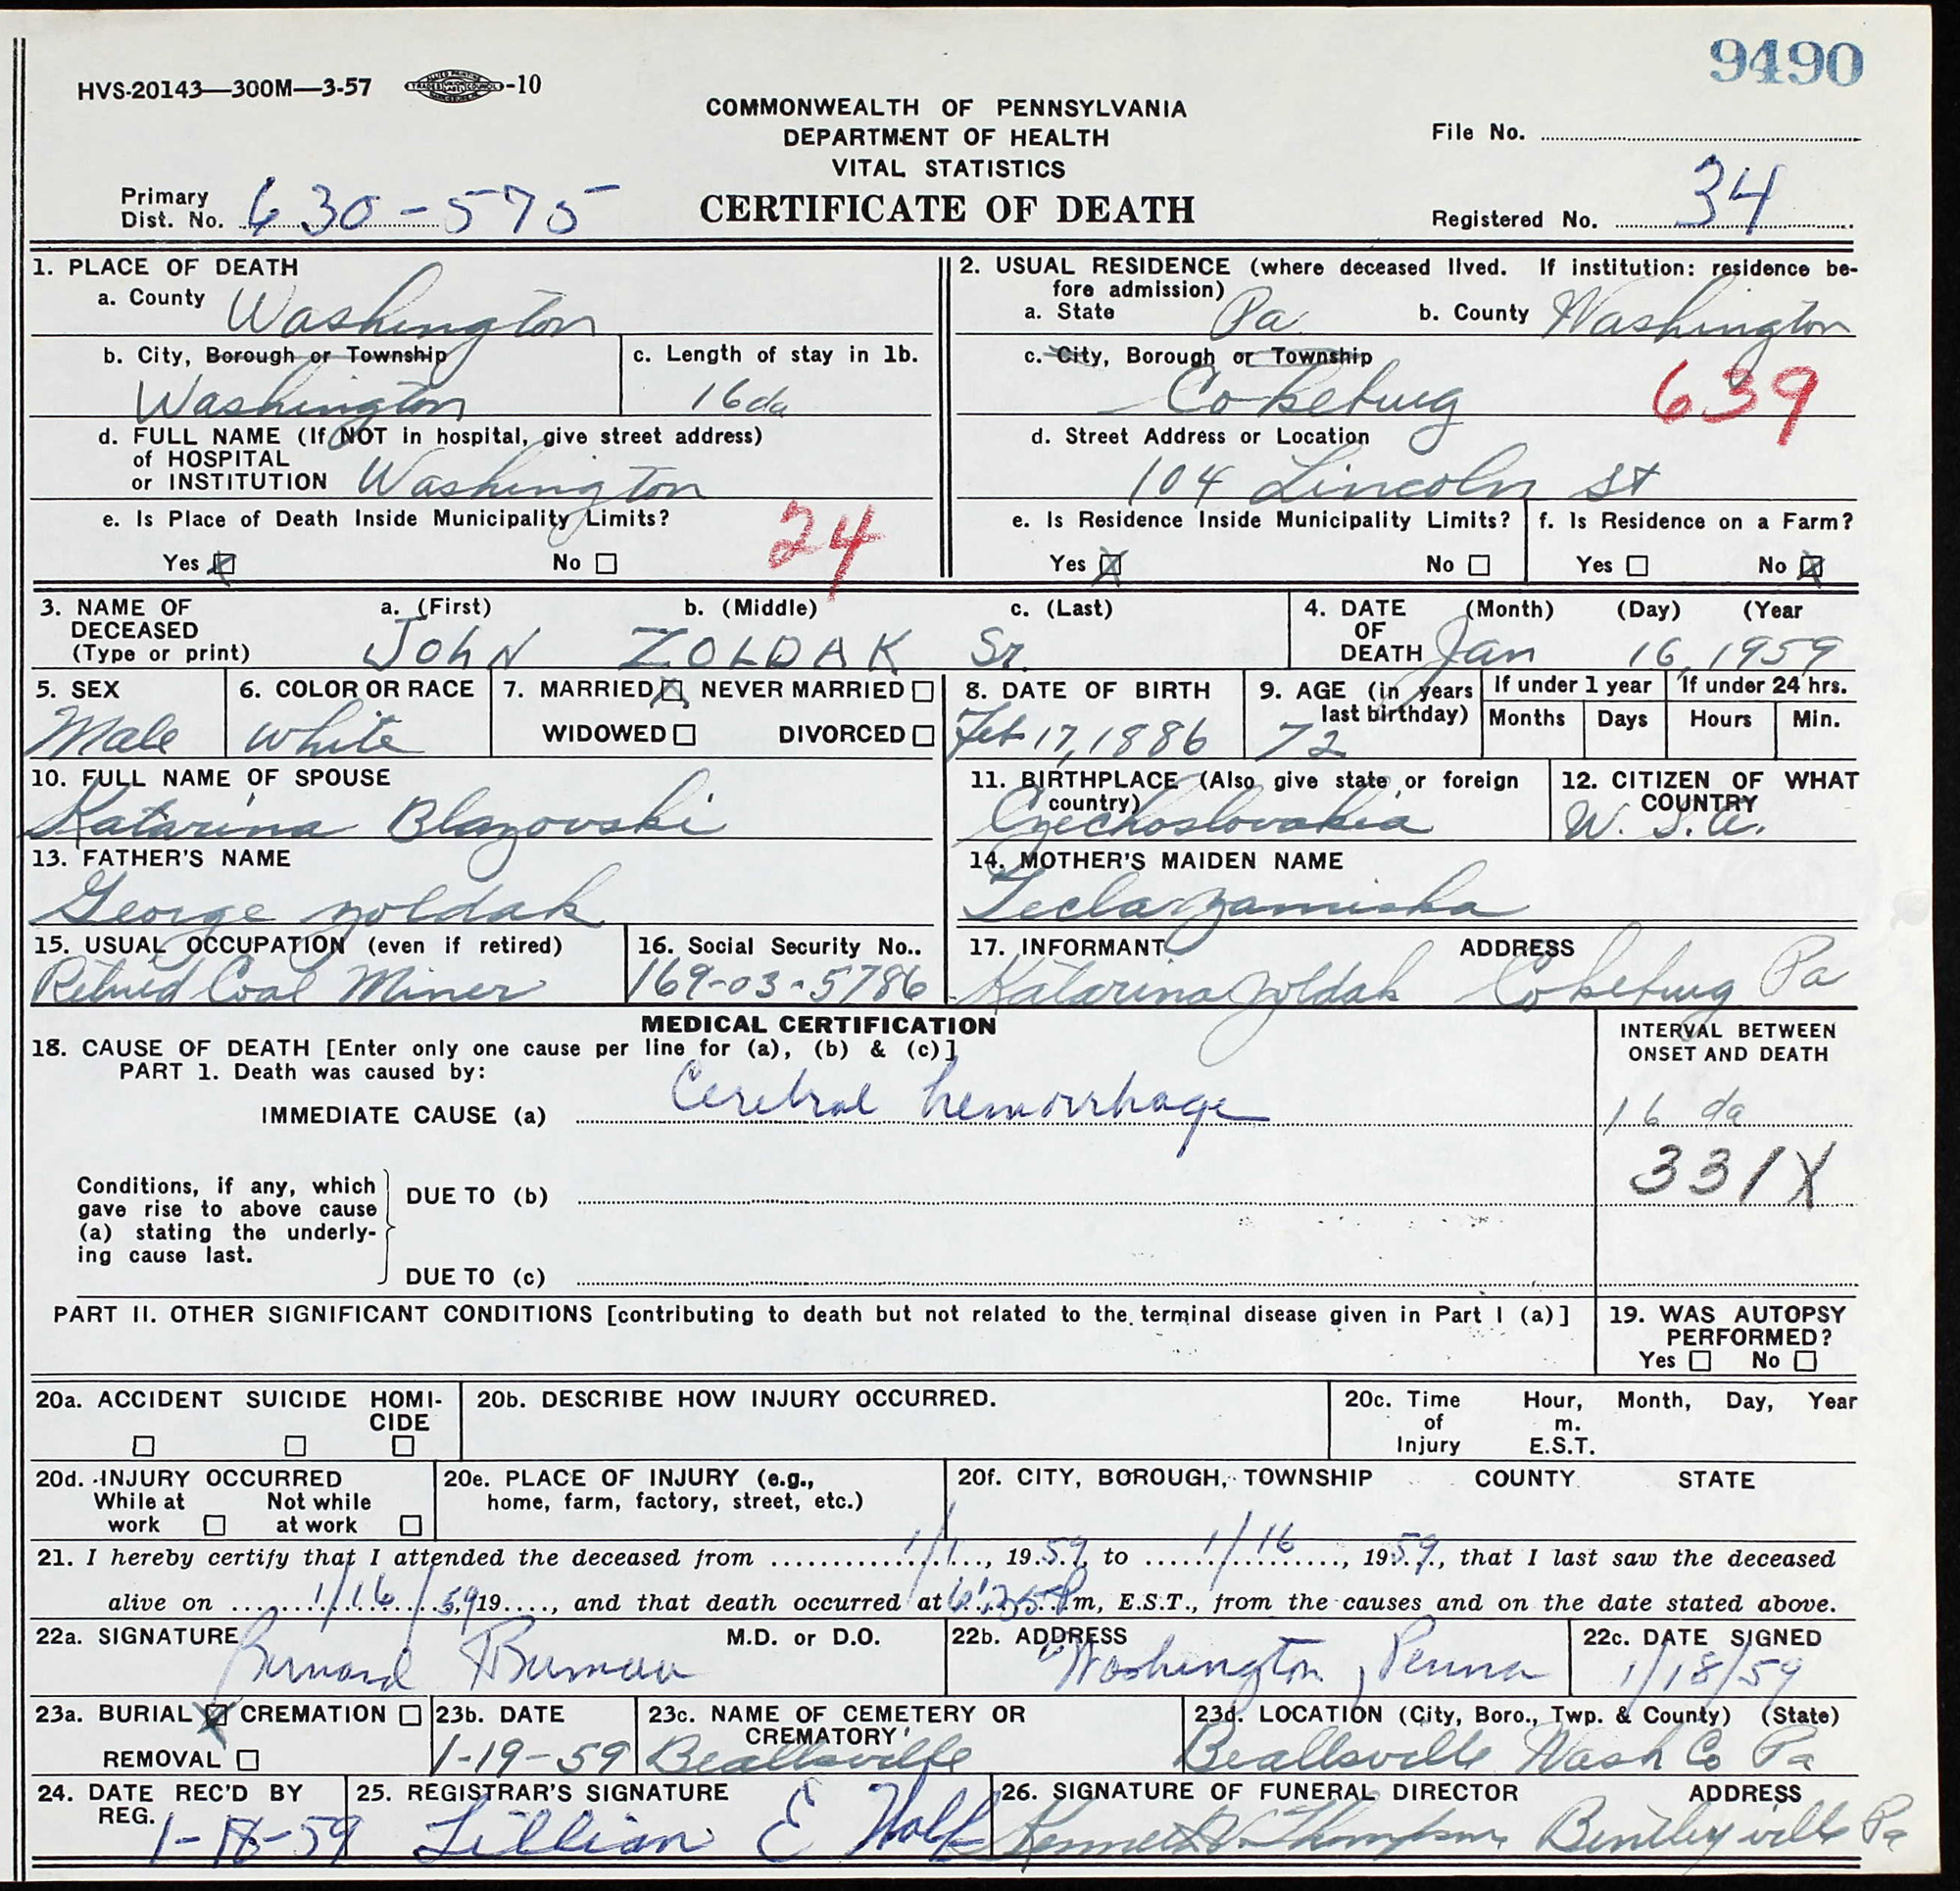 9490
HVS-20143—300M—3-57 -10
COMMONWEALTH OF PENNSYLVANIA
DEPARTMENT OF HEALTH
VITAL STATISTICS
CERTIFICATE OF DEATH
File No.
Primary
Dist. No. 630-575
Registered No. 34
1. PLACE OF DEATH
a. County Washington
b. City, Borough or Township
Washington
c. Length of stay in 1b.
16 da
d. FULL NAME (If NOT in hospital, give street address)
of HOSPITAL
or INSTITUTION Washington
e. Is Place of Death Inside Municipality Limits?
24
Yes No
2. USUAL RESIDENCE (where deceased lived. If institution: residence be-
fore admission)
a. State Pa b. County Washington
c. City, Borough or Township
Cokeburg 639
d. Street Address or Location
104 Lincoln St
e. Is Residence Inside Municipality Limits?
Yes No
f. Is Residence on a Farm?
Yes No
3. NAME OF
DECEASED
(Type or print)
a. (First) b. (Middle) c. (Last)
JOHN ZOLDAK Sr.
4. DATE
OF
DEATH
(Month) (Day) (Year
Jan 16, 1959
5. SEX
Male
6. COLOR OR RACE
White
7. MARRIED NEVER MARRIED
WIDOWED DIVORCED
8. DATE OF BIRTH
Feb 17, 1886
9. AGE (in years
last birthday)
72
If under 1 year
Months Days
If under 24 hrs.
Hours Min.
10. FULL NAME OF SPOUSE
Katarina Blazovski
11. BIRTHPLACE (Also give state or foreign
country)
Czechoslovakia
12. CITIZEN OF WHAT
COUNTRY
U.S.A.
13. FATHER'S NAME
George Zoldak
14. MOTHER'S MAIDEN NAME
Tecla Zamiska
15. USUAL OCCUPATION (even if retired)
Retired Coal Miner
16. Social Security No..
169-03-5786
17. INFORMANT ADDRESS
Katarina Zoldak Cokeburg Pa
MEDICAL CERTIFICATION
18. CAUSE OF DEATH [Enter only one cause per line for (a), (b) & (c)]
PART 1. Death was caused by:
IMMEDIATE CAUSE (a) Cerebral hemorrhage
INTERVAL BETWEEN
ONSET AND DEATH
16 da
331X
Conditions, if any, which
gave rise to above cause
(a) stating the underly-
ing cause last.
DUE TO (b)
DUE TO (c)
PART II. OTHER SIGNIFICANT CONDITIONS [contributing to death but not related to the terminal disease given in Part I (a)]
19. WAS AUTOPSY
PERFORMED?
Yes No
20a. ACCIDENT SUICIDE HOMI-
CIDE
20b. DESCRIBE HOW INJURY OCCURRED.
20c. Time
of
Injury
Hour, Month, Day, Year
m.
E.S.T.
20d. INJURY OCCURRED
While at
work
Not while
at work
20e. PLACE OF INJURY (e.g.,
home, farm, factory, street, etc.)
20f. CITY, BOROUGH, TOWNSHIP COUNTY STATE
21. I hereby certify that I attended the deceased from 1/1, 1959, to 1/16, 1959, that I last saw the deceased
alive on 1/16/59, 19...., and that death occurred at 6:35 P.m, E.S.T., from the causes and on the date stated above.
22a. SIGNATURE M.D. or D.O.
Bernard Berman
22b. ADDRESS
Washington, Penna
22c. DATE SIGNED
1/18/59
23a. BURIAL CREMATION
REMOVAL
23b. DATE
1-19-59
23c. NAME OF CEMETERY OR
CREMATORY
Beallsville
23d. LOCATION (City, Boro., Twp. & County) (State)
Beallsville Wash Co Pa
24. DATE REC'D BY
REG.
1-18-59
25. REGISTRAR'S SIGNATURE
Lillian E
26. SIGNATURE OF FUNERAL DIRECTOR ADDRESS
Kenneth Thompson Bentleyville Pa